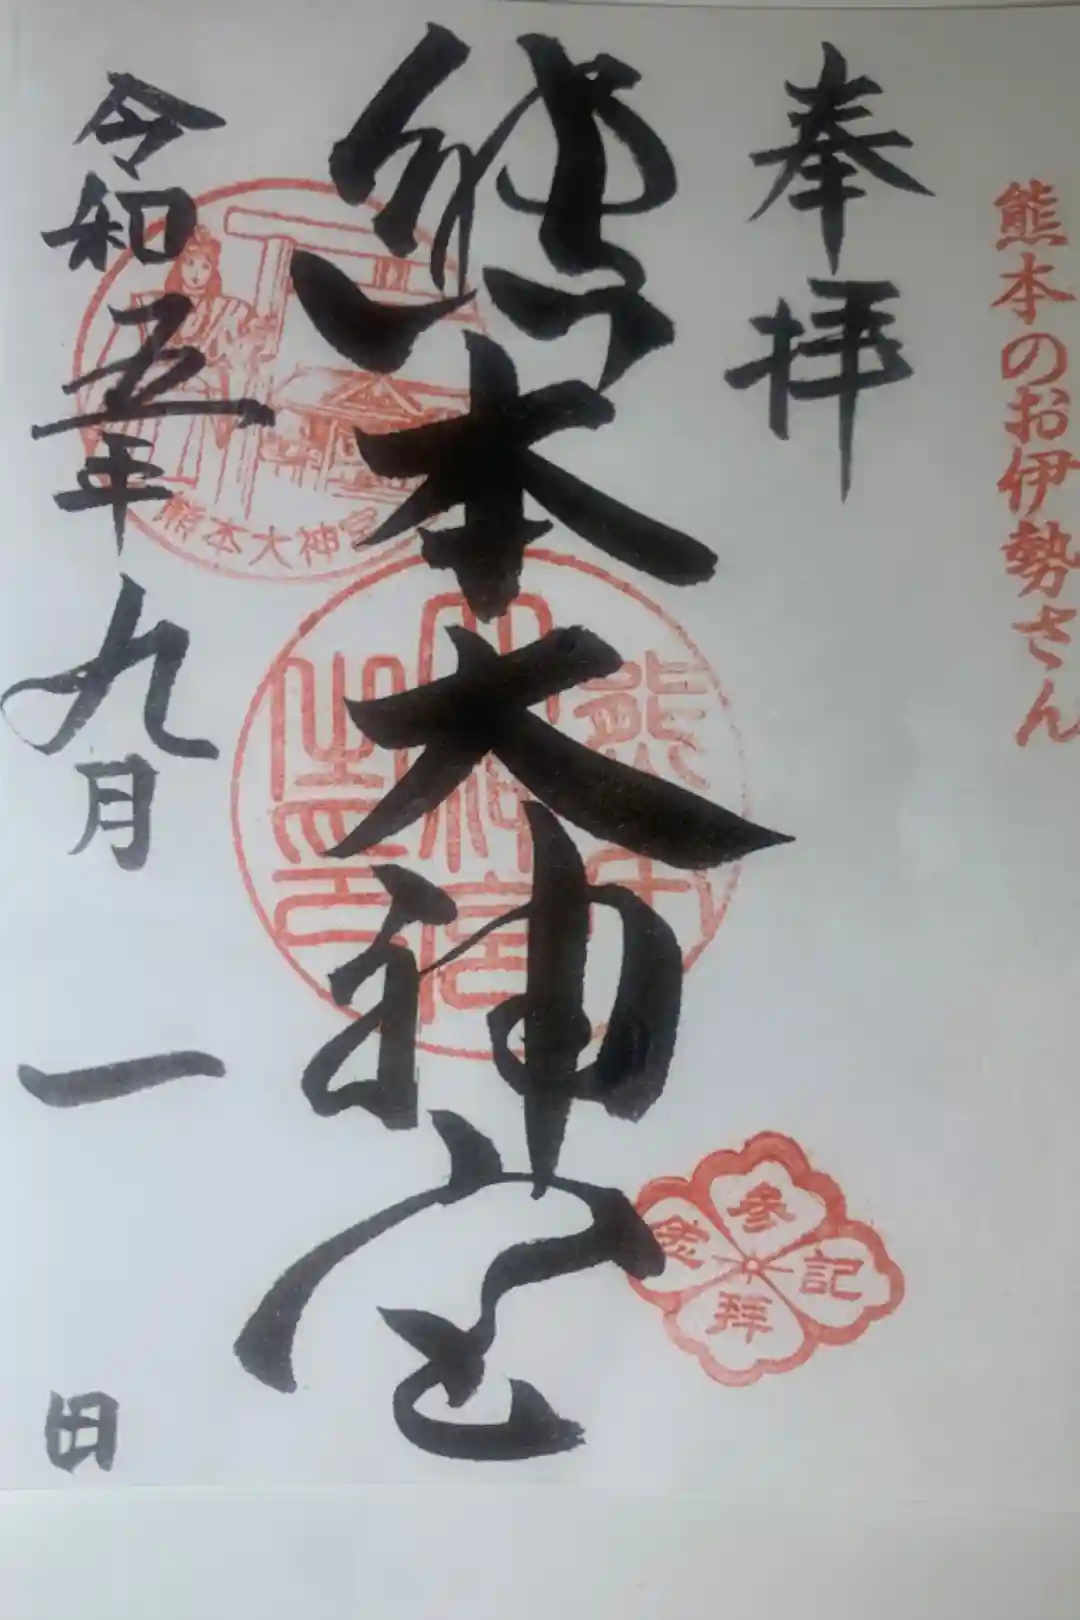 熊本のお伊勢さん
奉拝
熊本大神宮
令和五年九月一日
熊本大神宮
熊本
大神宮
之璽
参拝記念